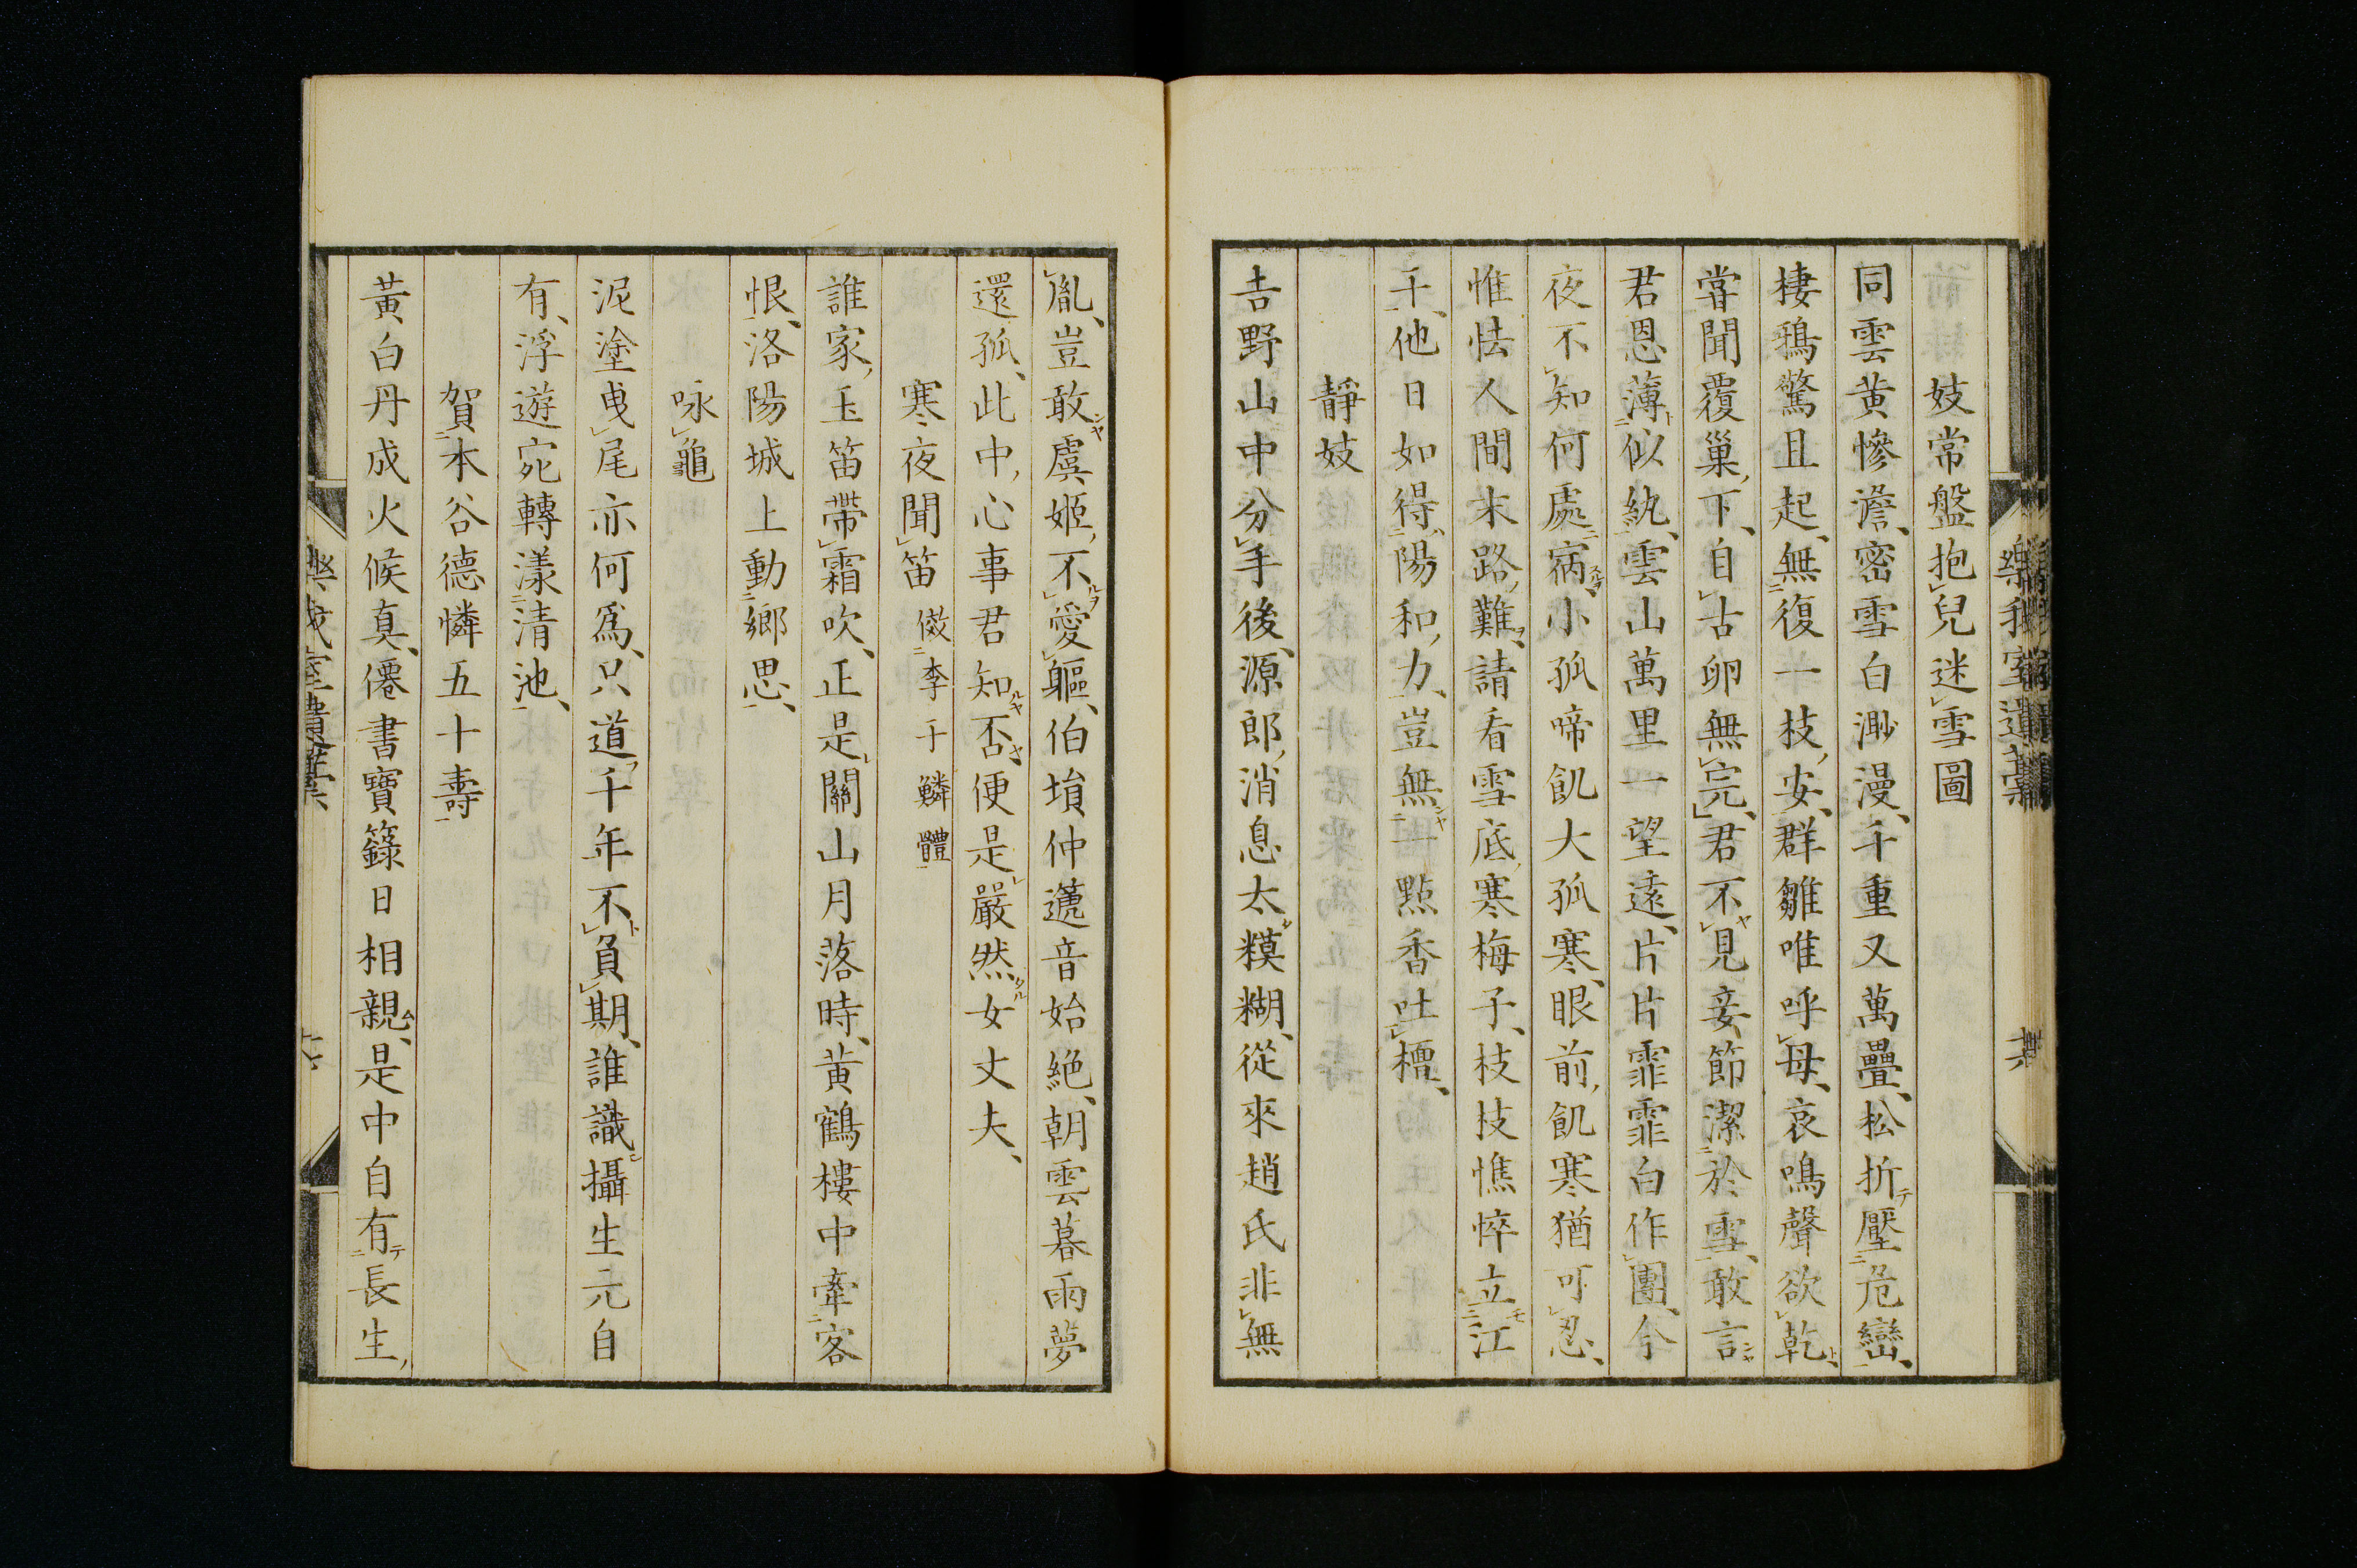 妓常盤抱兒迷雪圖
同雲黄慘澹、密雪白渺漫、千重又萬疊、松折壓危巒、
棲鴉驚且起、無復一枝安、群雛唯呼母、哀鳴聲欲乾、
甞聞覆巢下、自古卵無完、君不見妾節潔於雪、敢言
君恩薄似紈、雲山萬里一望遠、片片霏霏白作團、今
夜不知何處宿、小孤啼飢大孤寒、眼前飢寒猶可忍、
惟怯人間末路難、請看雪底寒梅子、枝枝憔悴立江
干、他日如得陽和力、豈無一點香吐檀、
靜妓
吉野山中分手後、源郎消息太糢糊、從來趙氏非無
胤、豈敢虞姬不愛軀、伯塤仲篪音始絕、朝雲暮雨夢
還孤、此中心事君知否、便是嚴然女丈夫、
寒夜聞笛 倣李于鱗體
誰家玉笛帶霜吹、正是關山月落時、黄鶴樓中牽客
恨、洛陽城上動鄉思、
咏龜
泥塗曳尾亦何爲、只道千年不負期、誰識攝生元自
有、浮遊宛轉漾清池、
賀本谷德憐五十壽
黄白丹成火候真、僊書寶籙日相親、是中自有長生